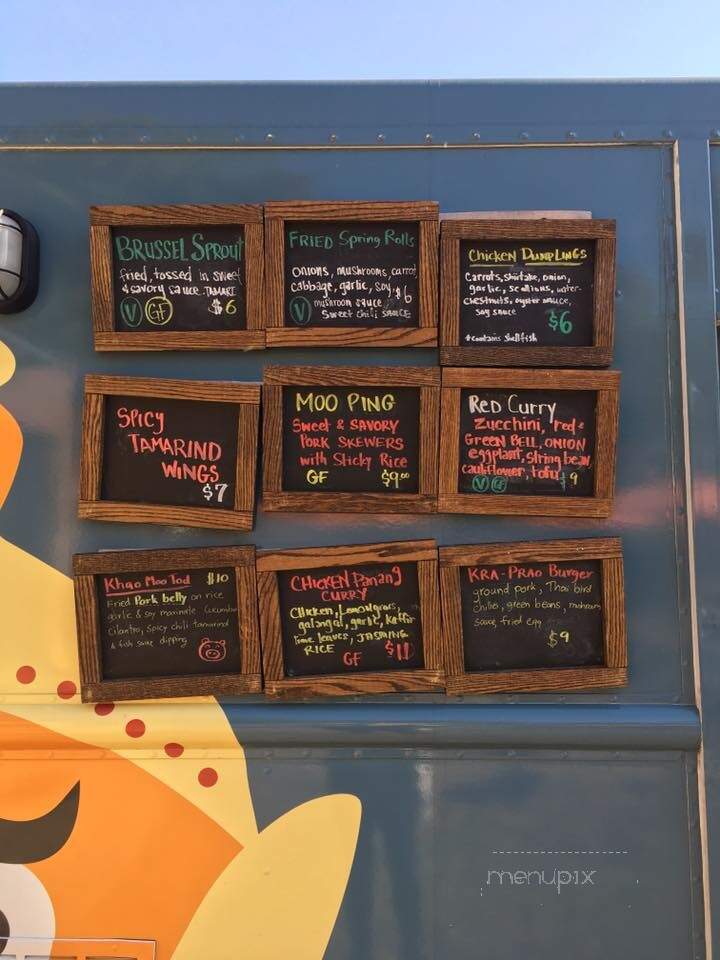 BRUSSEL SPROUT
fried, tossed in sweet
& savory sauce. TAMARI
V GF $6
FRIED Spring Rolls
Onions, mushrooms, carrot
Cabbage, garlic, soy, $6
mushroom sauce
V Sweet chili SAUCE
Chicken DUMPLINGS
Carrots, shitake, onion,
garlic, scallions, water-
chestnuts, oyster sauce,
soy sauce
$6
*contains shellfish
SPICY
TAMARIND
WINGS
$7
MOO PING
Sweet & SAVORY
PORK SKEWERS
with Sticky Rice
GF $9.00
RED Curry
Zucchini, red &
GREEN BELL, ONION
eggplant, string bean,
cauliflower, tofu
V $9
Khao Moo Tod $10
Fried Pork belly on rice
garlic & soy marinate cucumber
cilantro, spicy chili tamarind
& fish sauce dipping
CHICKEN Panang
CURRY
Chicken, Lemongrass,
galangal, garlic, Kaffir
lime leaves, JASMINE
RICE
GF $11
KRA-PRAO Burger
ground pork, Thai bird
chilies, green beans, mushroom
sauce, fried egg
$9
menupix